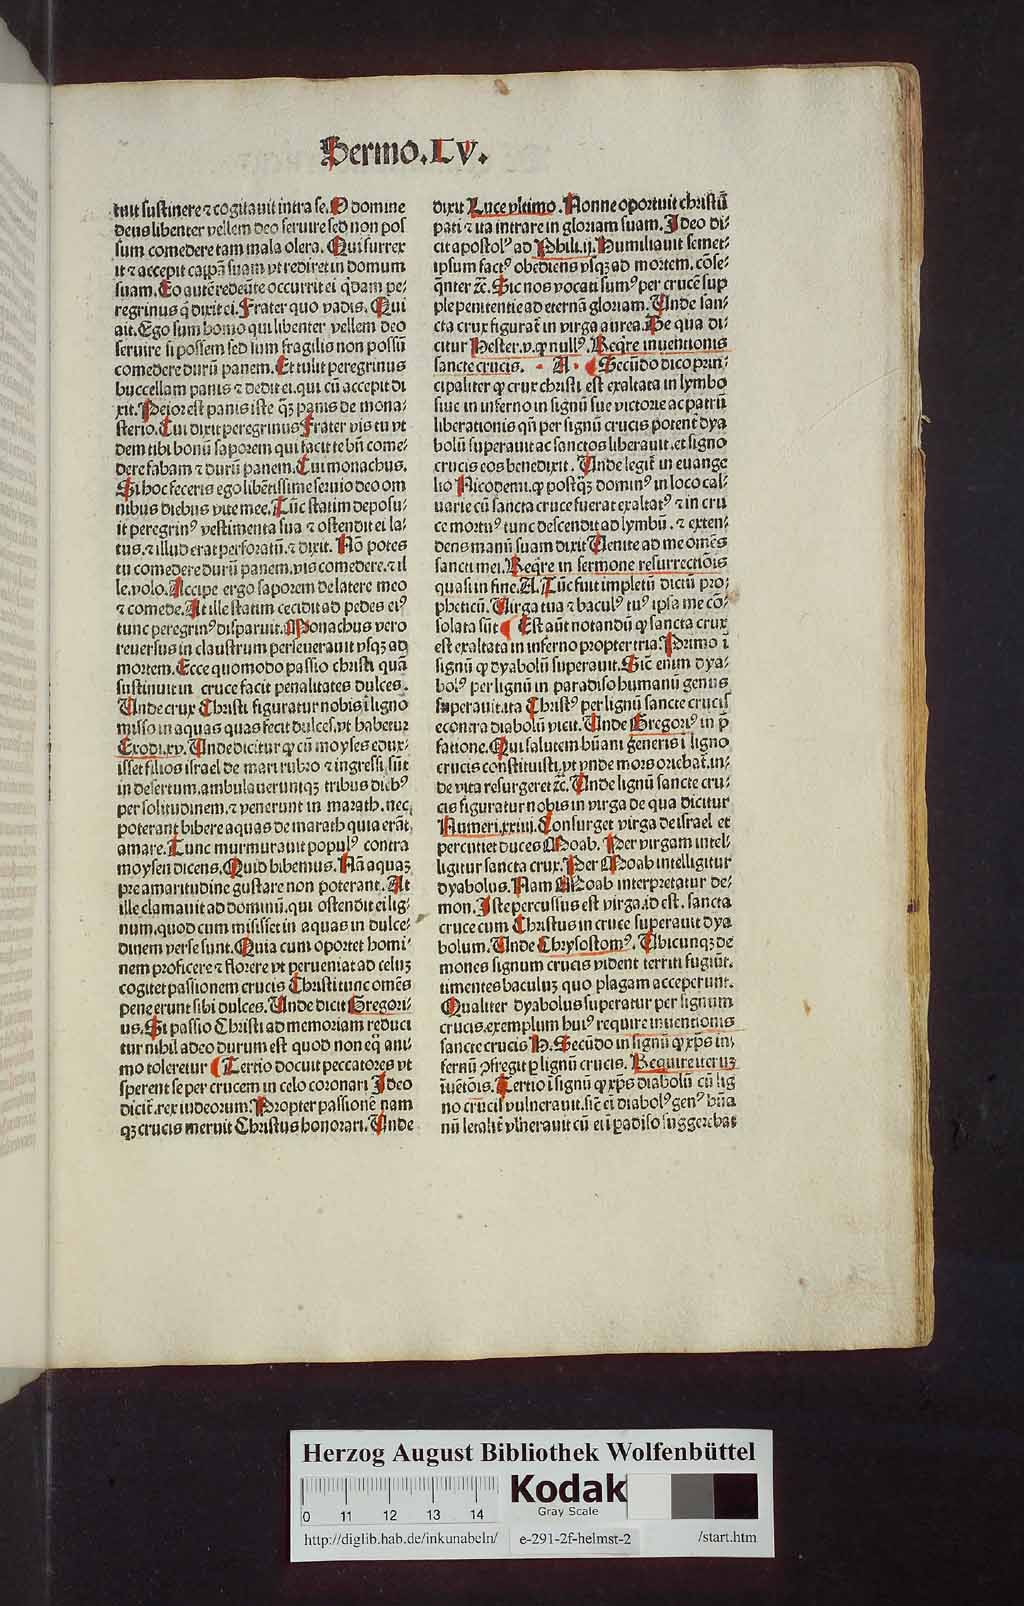 Sermo.LV.
tuit sustinere ⁊ cogitauit intra se. O domine
deus libenter vellem deo seruire sed non pos
sum comedere tam mala olera. Qui surrex
it ⁊ accepit cappā suam vt rediret in domum
suam. Eo autē redeūte occurrit ei q̄dam pe⸗
regrinus q̄ dixit ei. Frater quo vadis. Qui
ait. Ego sum homo qui libenter vellem deo
seruire si possem sed sum fragilis non possū
comedere durū panem. Et tulit peregrinus
buccellam panis ⁊ dedit ei. qui cū accepit di
xit. Peior est panis iste q̄ꝫ panis de mona⸗
sterio. Cui dixit peregrinus Frater vis tu vt
dem tibi bonū saporem qui facit te bn̄ come⸗
dere fabam ⁊ durū panem. Cui monachus.
Si hoc feceris ego libētissime seruio deo om
nibus diebus vite mee. Tūc statim deposu⸗
it peregrinꝰ vestimenta sua ⁊ ostendit ei la⸗
tus. ⁊ illud erat perforatū. ⁊ dixit. Nō potes
tu comedere durū panem. vis comedere. ⁊ il
le. volo. Accipe ergo saporem de latere meo
⁊ comede. At ille statim cecidit ad pedes eiꝰ
tunc peregrinꝰ disparuit. Monachus vero
reuersus in claustrum perseuerauit vsqꝫ ad
mortem. Ecce quomodo passio christi quā
sustinuit in cruce facit penalitates dulces.
Unde crux Christi figuratur nobis ī ligno
misso in aquas quas fecit dulces. vt habetur
Exodi.xv. Unde dicitur ꝙ cū moyses edux⸗
isset filios israel de mari rubro ⁊ ingressi sūt
in desertum. ambulaueruntqꝫ tribus diebꝰ
per solitudinem. ⁊ venerunt in marath. nec
poterant bibere aquas de marath quia erāt
amare. Tunc murmurauit populꝰ contra
moysen dicens. Quid bibemus. Nā aquaꝫ
pre amaritudine gustare non poterant. At
ille clamauit ad dominū. qui ostendit ei lig⸗
num. quod cum misisset in aquas in dulce⸗
dinem verse sunt. Quia cum oportet homi⸗
nem proficere ⁊ florere vt perueniat ad celuꝫ
cogitet passionem crucis Christi tunc omēs
pene erunt sibi dulces. Unde dicit Gregori⸗
us. Si passio Christi ad memoriam reduci
tur nihil adeo durum est quod non eq̄ ani⸗
mo toleretur Tertio docuit peccatores vt
sperent se per crucem in celo coronari Ideo
dicit̄. rex iudeorum. Propter passionē nam
qꝫ crucis meruit Christus honorari. Unde
dixit Luce vltimo. Nonne oportuit christū
pati ⁊ ita intrare in gloriam suam. Ideo di⸗
cit apostolꝰ ad Phili.ij. Humiliauit semet⸗
ipsum factꝰ obediens vsqꝫ ad mortem. cōse⸗
q̄nter ⁊c̄. Sic nos vocati sumꝰ per crucē sup
ple penitentie ad eternā gloriam. Unde san⸗
cta crux figurat̄ in virga aurea. De qua di⸗
citur Hester.v. ꝙ nullꝰ. Reqͥre inuentionis
sancte crucis. A. Secūdo dico prin⸗
cipaliter ꝙ crux christi est exaltata in lymbo
siue in inferno in signū sue victorie ac patrū
liberationis qn̄ per signū crucis potent̄ dya
bolū superauit ac sanctos liberauit. et signo
crucis eos benedixit. Unde legit̄ in euange
lio Nicodemi. ꝙ postq̄ꝫ dominꝰ in loco cal⸗
uarie cū sancta cruce fuerat exaltatꝰ ⁊ in cru
ce mortuꝰ tunc descendit ad lymbū. ⁊ exten⸗
dens manū suam dixit Uenite ad me omēs
sancti mei. Reqͥre in sermone resurrectiōis
quasi in fine. A. Tūc fuit impletū dictū pro⸗
pheticū. Uirga tua ⁊ baculꝰ tuꝰ ipsa me cō⸗
solata sūt Est aūt notandū ꝙ sancta crux
est exaltata in inferno propter tria. Primo ī
signū ꝙ dyabolū superauit. Sic̄ enim dya⸗
bolꝰ per lignū in paradiso humanū genus
superauit. ita Christꝰ per lignū sancte crucis
econtra diabolū vicit. Unde Gregoriꝰ in p̄
fatione. Qui salutem hūani generis ī ligno
crucis constituisti. vt vnde mors oriebat̄. in⸗
de vita resurgeret ⁊c̄. Unde lignū sancte cru⸗
cis figuratur nobis in virga de qua dicitur
Numeri.xxiiij. Consurget virga de israel et
percutiet duces Moab. Per virgam intel⸗
ligitur sancta crux. Per Moab intelligitur
dyabolus. Nam Moab interpretatur de⸗
mon. Iste percussus est virga. id est. sancta
cruce cum Christus in cruce superauit dya
bolum. Unde Chrysostomꝰ. Ubicunqꝫ de
mones signum crucis vident territi fugiūt.
timentes baculuꝫ quo plagam acceperunt.
Qualiter dyabolus superatur per signum
crucis. exemplum huiꝰ require inuentionis
sancte crucis H. Secūdo in signū ꝙ xp̄s in⸗
fernū ꝯfregit ꝑ lignū crucis. Require vt cruꝫ
īuētōis. Tertio ī signū ꝙ xp̄s diabolū cū lig
no crucis vulnerauit. sic̄ ei diabolꝰ genꝰ hūa
nū letalit̄ vlnerauit cū ei ī ꝑadiso suggerebat
Herzog August Bibliothek Wolfenbüttel
0 11 12 13 14
Kodak
Gray Scale
http://diglib.hab.de/inkunabeln/ e-291-2f-helmst-2 /start.htm